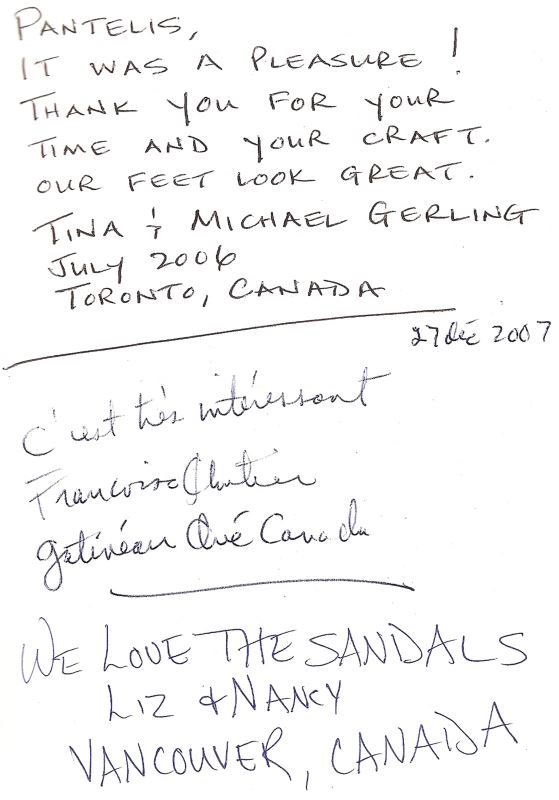 PANTELIS,
IT WAS A PLEASURE!
THANK YOU FOR YOUR
TIME AND YOUR CRAFT.
OUR FEET LOOK GREAT.
TINA & MICHAEL GERLING
JULY 2006
TORONTO, CANADA
27 déc 2007
C'est très intéressant
Françoise
Gatineau Qué Canada
WE LOVE THE SANDALS
LIZ & NANCY
VANCOUVER, CANADA